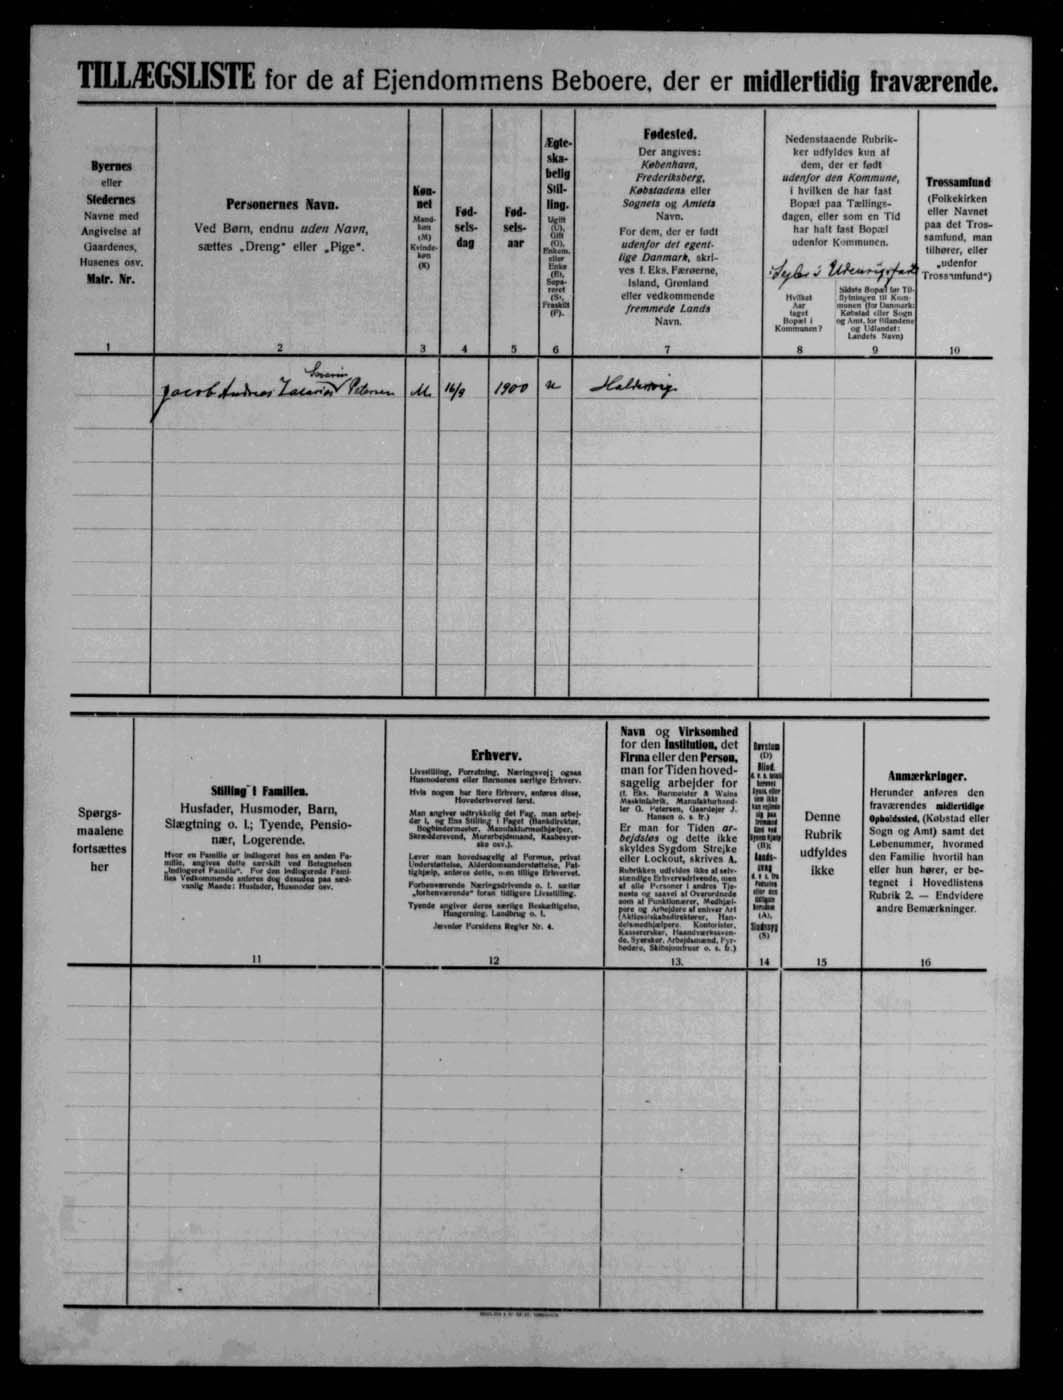 TILLÆGSLISTE for de af Ejendommens Beboere, der er midlertidig fraværende.
Byernes
eller
Stedernes
Navne med
Angivelse af
Gaardenes,
Husenes osv.
Matr. Nr.
1
Personernes Navn.
Ved Børn, endnu uden Navn,
sættes „Dreng“ eller „Pige“.
2
Køn-
net
Mand-
køn
(M)
Kvinde-
køn
(K)
3
Fød-
sels-
dag
4
Fød-
sels-
aar
5
Ægte-
ska-
belig
Stil-
ling.
Ugift
(U),
Gift
(G),
Enkem.
eller
Enke
(E),
Sepa-
reret
(S),
Fraskilt
(F).
6
Fødested.
Der angives:
København,
Frederiksberg,
Købstadens eller
Sognets og Amtets
Navn.
For dem, der er født
udenfor det egent-
lige Danmark, skri-
ves f. Eks. Færøerne,
Island, Grønland
eller vedkommende
fremmede Lands
Navn.
7
Nedenstaaende Rubrik-
ker udfyldes kun af
dem, der er født
udenfor den Kommune,
i hvilken de har fast
Bopæl paa Tællings-
dagen, eller som en Tid
har haft fast Bopæl
udenfor Kommunen.
Sejler i Udenrigsfart
Hvilket
Aar
taget
Bopæl i
Kommunen?
8
Sidste Bopæl før Til-
flytningen til Kom-
munen (for Danmark:
Købstad eller Sogn
og Amt, for Bilandene
og Udlandet:
Landets Navn)
9
Trossamfund
(Folkekirken
eller Navnet
paa det Tros-
samfund, man
tilhører, eller
„udenfor
Trossamfund“)
10
Severin
Jacob Andreas Zacarias Petersen M. 16/9 1900 u Haldersvig
Spørgs-
maalene
fortsættes
her
Stilling i Familien.
Husfader, Husmoder, Barn,
Slægtning o. l.; Tyende, Pensio-
nær, Logerende.
Hvor en Familie er indlogeret hos en anden Fa-
milie, angives dette særskilt ved Betegnelsen
„Indlogeret Familie“. For den indlogerede Fami-
lies Vedkommende anføres dog desuden paa sæd-
vanlig Maade: Husfader, Husmoder osv.
11
Erhverv.
Livsstilling, Forretning, Næringsvej; ogsaa
Husmoderens eller Børnenes særlige Erhverv.
Hvis nogen har flere Erhverv, anføres disse,
Hovederhvervet først.
Man angiver udtrykkelig det Fag, man arbej-
der i, og Ens Stilling i Faget (Bankdirektør,
Bogbindermester, Manufakturmedhjælper,
Skræddersvend, Murarbejdsmand, Kaabesyer-
ske osv.).
Lever man hovedsagelig af Formue, privat
Understøttelse, Alderdomsunderstøttelse, Fat-
tighjælp, anføres dette, men tillige Erhvervet.
Forhenværende Næringsdrivende o. l. sætter
„forhenværende“ foran tidligere Livsstilling.
Tyende angiver deres særlige Beskæftigelse,
Husgerning, Landbrug o. l.
Jævnfør Forsidens Regler Nr. 4.
12
Navn og Virksomhed
for den Institution, det
Firma eller den Person,
man for Tiden hoved-
sagelig arbejder for
(f. Eks. Burmeister & Wains
Maskinfabrik, Manufakturhand-
ler O. Petersen, Gaardejer J.
Hansen o. s. fr.)
Er man for Tiden ar-
bejdsløs og dette ikke
skyldes Sygdom Strejke
eller Lockout, skrives A.
Rubrikken udfyldes ikke af selv-
stændige Erhvervsdrivende, men
af alle Personer i andres Tje-
neste og saavel af Overordnede
som af Funktionærer, Medhjæl-
pere og Arbejdere af enhver Art
(Aktieselskabsdirektører, Han-
delsmedhjælpere, Kontorister,
Kassererskør, Haandværkssven-
de, Syersker, Arbejdsmænd, Fyr-
bødere, Skibsjomfruer o. s. fr.)
13.
Døvstum
(D)
Blind,
(B);
Aands-
svag
(A),
Sindssyg
(S)
14
Denne
Rubrik
udfyldes
ikke
15
Anmærkninger.
Herunder anføres den
fraværendes midlertidige
Opholdssted, (Købstad eller
Sogn og Amt) samt det
Løbenummer, hvormed
den Familie hvortil han
eller hun hører, er be-
tegnet i Hovedlistens
Rubrik 2. — Endvidere
andre Bemærkninger.
16